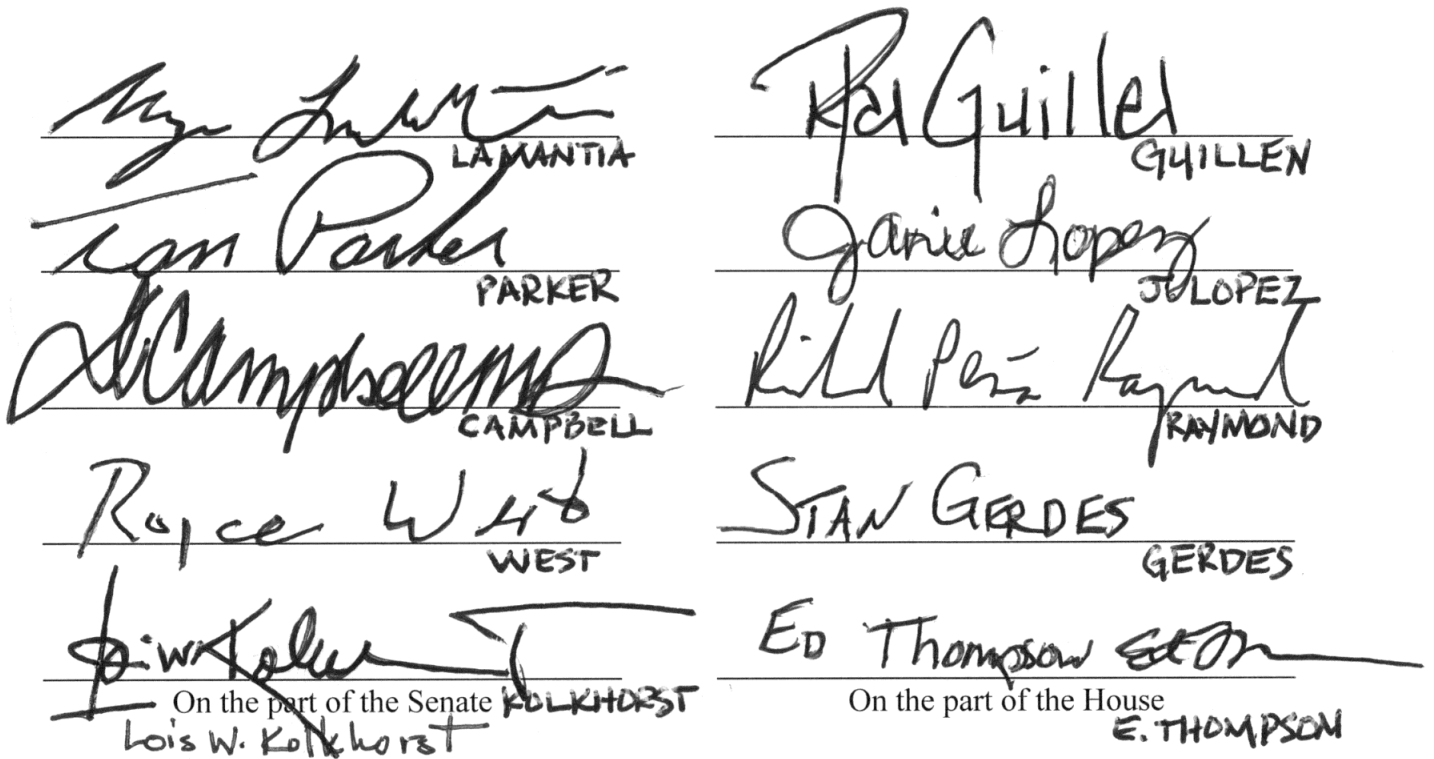 LAMANTIA
Tan Parker
PARKER
Campbell
CAMPBELL
Royce West
WEST
Lois W. Kolkhorst
On the part of the Senate KOLKHORST
Lois W. Kolkhorst
Guillen
GUILLEN
Janie Lopez
J. LOPEZ
Richard Peña Raymond
RAYMOND
STAN GERDES
GERDES
ED Thompson
On the part of the House
E. THOMPSON